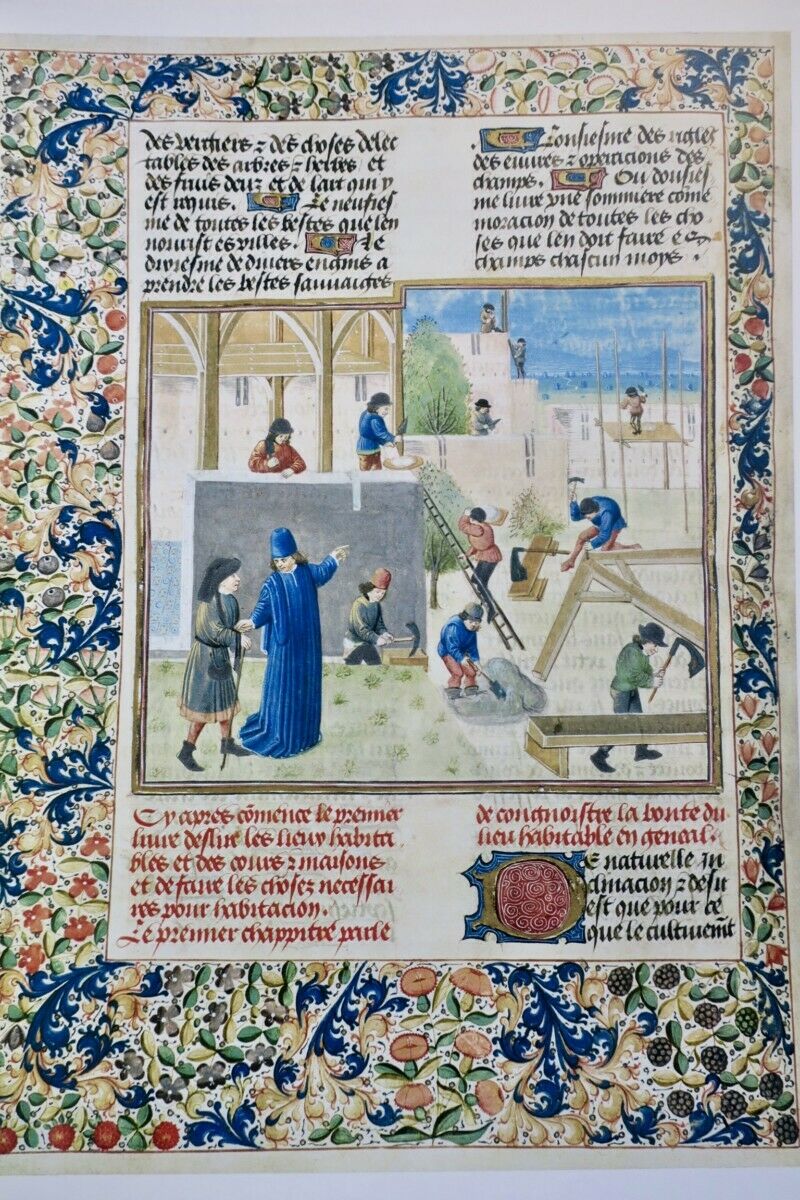 des vergiers & des choses delec
tables des arbres & herbes et
des fruis deux et de lart qui y
est requis. Le neufies
me de toutes les bestes que len
nourist es villes. Le
dixiesme de divers engins a
prendre les bestes sauvaiges
Lonsiesme des rigles
des euvres & operacions des
champs. Ou dousies
me livre une sommiere come
moracion de toutes les cho
ses que len doit faire es
champs chascun moys.
Cy apres cõmence le premier
livre deslire les lieux habita
bles et des cours & maisons
et de faire les choses necessai
res pour habitacion.
Le premier chappitre parle
de congnoistre la bonte du
lieu habitable en general.
De naturelle in
clinacion & desir
est que pour ce
que le cultivemt